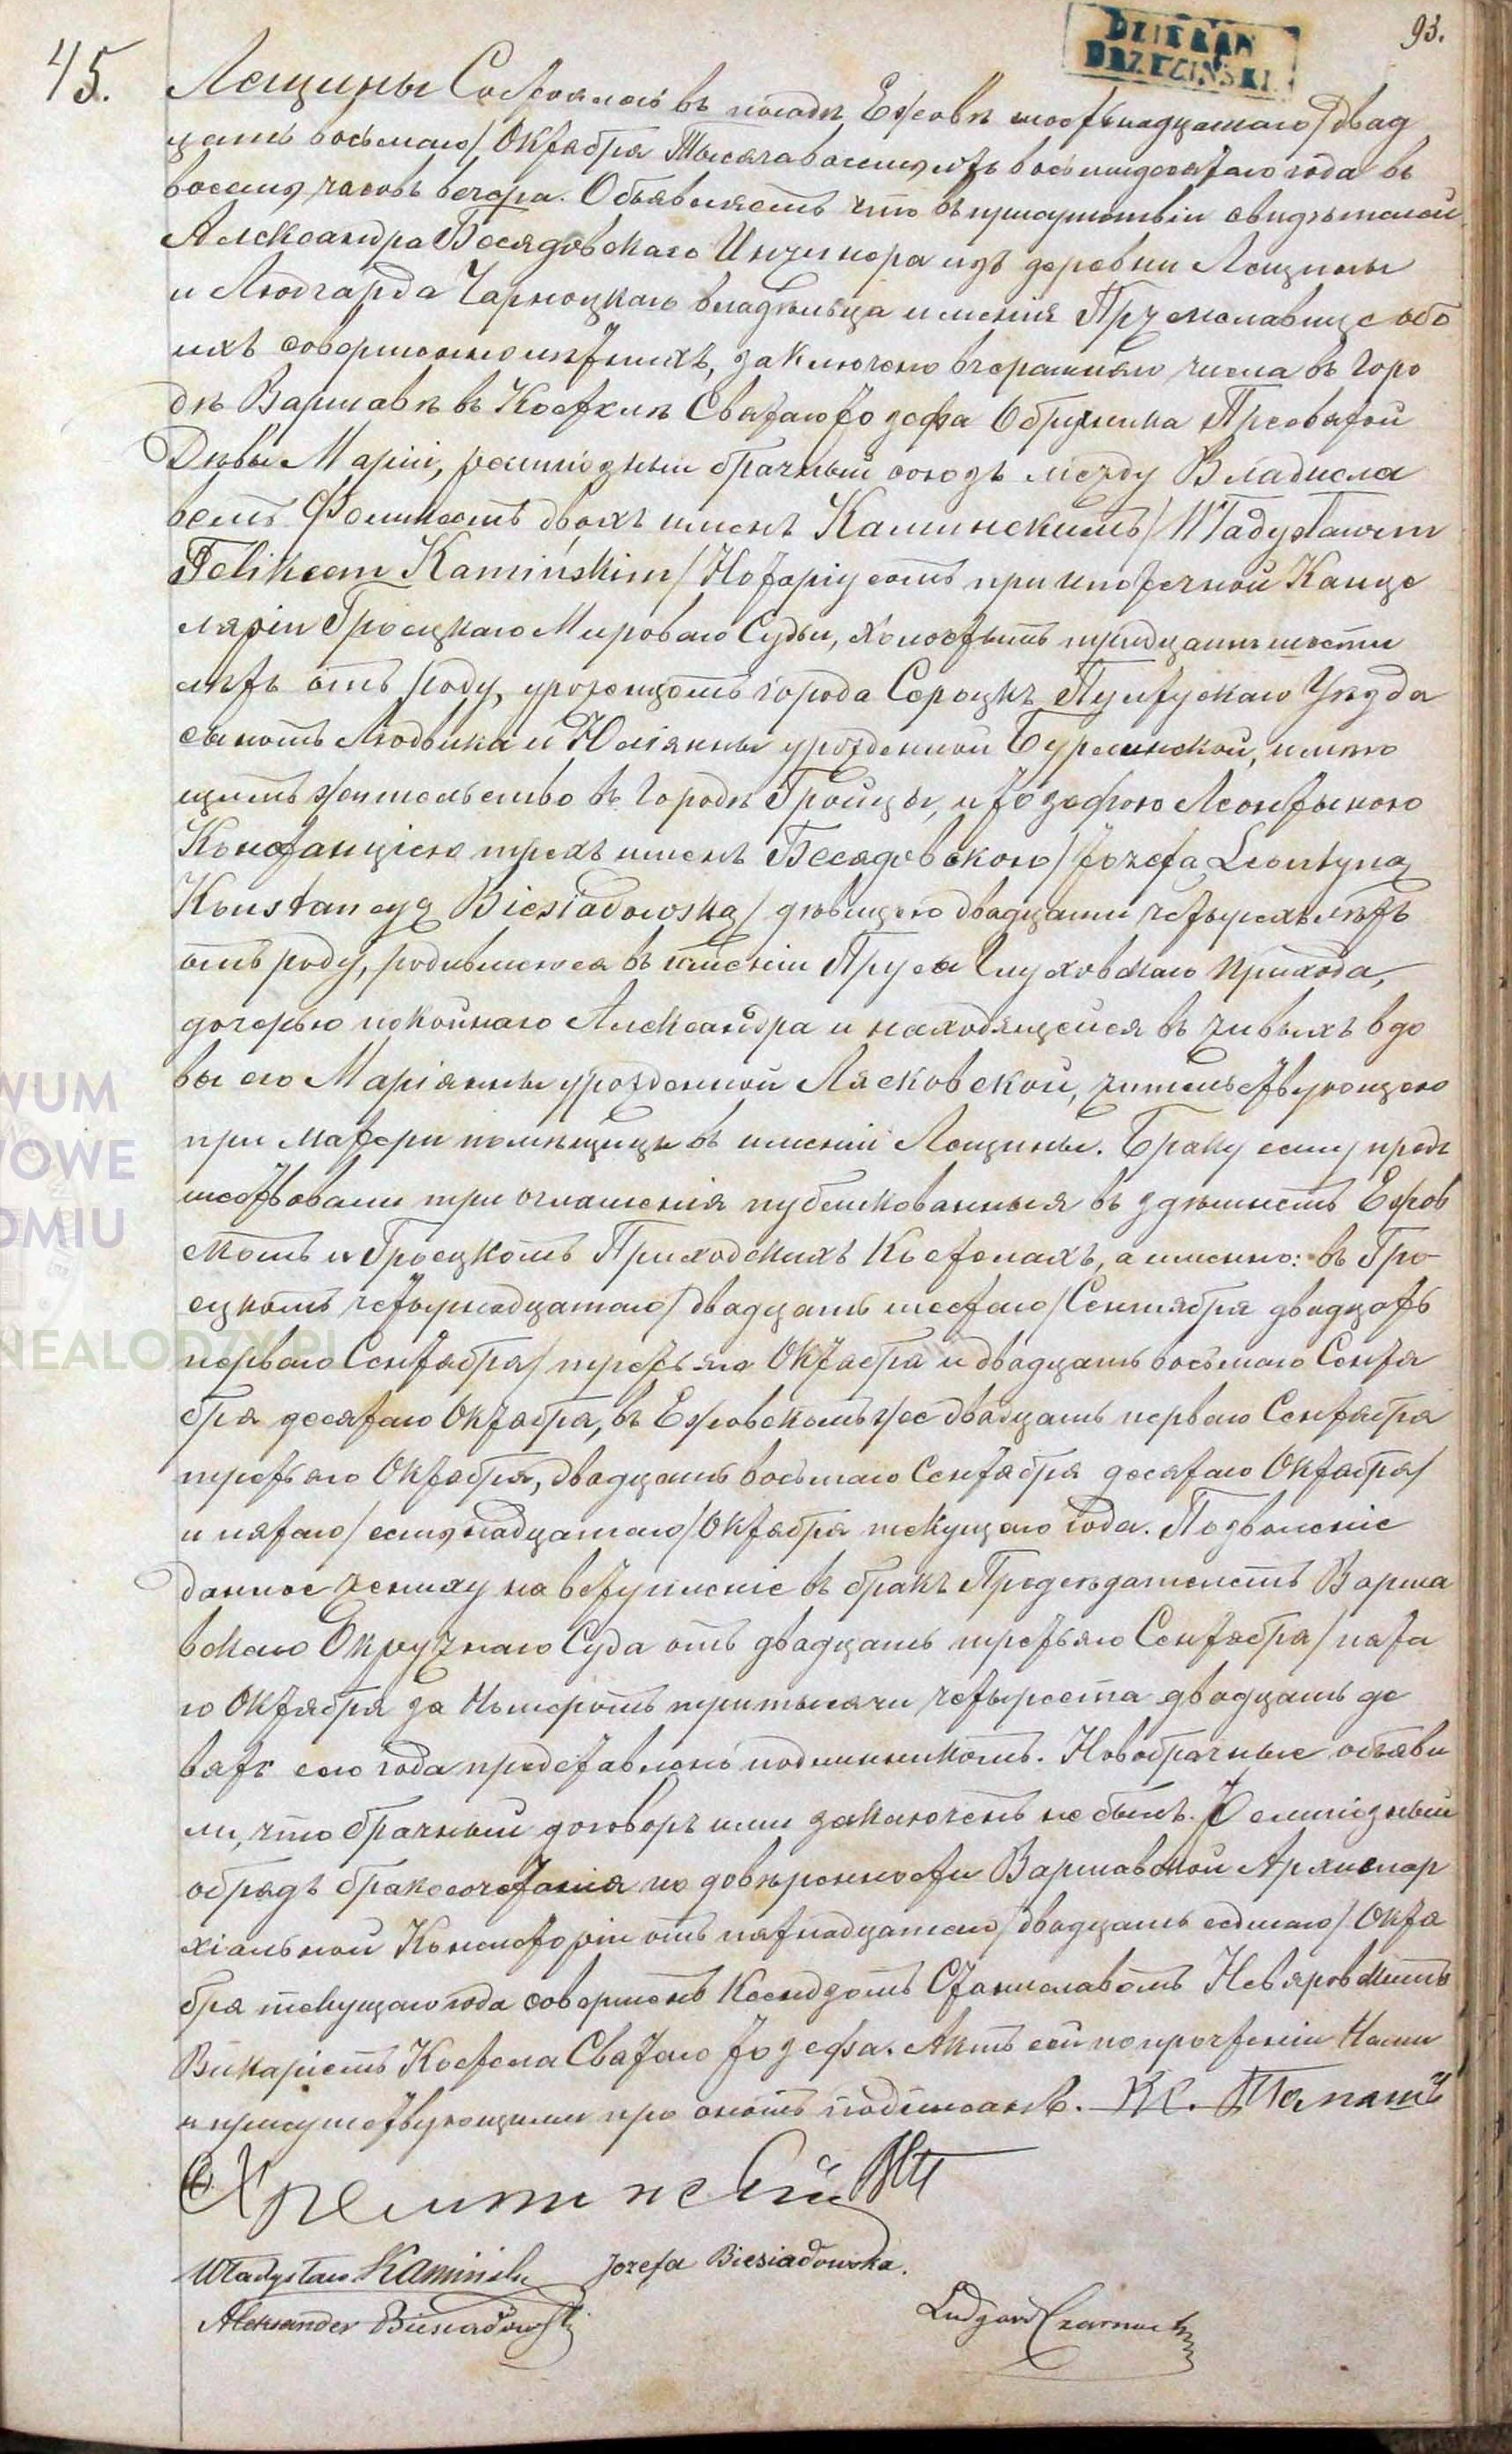 93.
DZIEKAN
BRZEZIŃSKI
45.
Лещины Состоялось въ посадѣ Ежовѣ шестьнадцатаго/двад
цать восьмаго/Октября Тысяча восемьсотъ восьмидесятаго года въ
восемь часовъ вечера. Объявляетъ что въ присутствіи свидѣтелей
Александра Бесядовскаго Инженера изъ деревни Лещины
и Людгарда Чарноцкаго владѣльца имѣнія Пржемславице обо
ихъ совершеннолѣтнихъ, заключено вчерашняго числа въ Горо
дѣ Варшавѣ въ Костелѣ Святаго Іозефа Обручника Пресвятой
Дѣвы Маріи, религіозный брачный союзъ между Владисла
вомъ Феликсомъ двохъ именъ Каминскимъ/Władysławem
Feliksem Kamińskim/Нотаріусомъ при ипотечной Канце
ляріи Гроецкаго Мироваго Судьи, холостымъ тридцати шести
лѣтъ отъ роду, урожденцемъ города Сероцкъ Пултускаго Уѣзда
сыномъ Людвика и Юліянны урожденной Буреинской, имѣю
щимъ жительство въ Городѣ Гройцы, и Іозефою Леонтыною
Констанціею трехъ именъ Бесядовскою/Józefą Leontyną
Konstancyą Biesiadowską/дѣвицею двадцати четырехъ лѣтъ
отъ роду, родившеюся въ имѣніи Пруса Глуховскаго прихода,
дочерью покойнаго Александра и находящейся въ живыхъ вдо
вы его Маріянны урожденной Лясковской, жительствующею
при матери помѣщицѣ въ имѣніи Лещины. Браку сему пред
шествовали три оглашенія публикованныя въ здѣшнемъ Ежов
скомъ и Гроецкомъ Приходскихъ Костелахъ, а именно: въ Гро-
ецкомъ четырнадцатаго/двадцать шестаго/Сентября двадцать
перваго Сентября/третьяго Октября и двадцать восьмаго Сентя
бря десятаго Октября, въ Ежовскомъ же двадцать перваго Сентября
третьяго Октября, двадцать восьмаго Сентября десятаго Октября/
и пятаго/семнадцатаго/Октября текущаго года. Позволеніе
данное жениху на вступленіе въ бракъ Предсѣдателемъ Варша
вскаго Окружнаго Суда отъ двадцать третьяго Сентября/пята
го Октября за Нумеромъ три тысячи четыреста двадцать де
вять сего года представленъ подлинникомъ. Новобрачные объяви
ли, что брачный договоръ ими заключенъ не былъ. Религіозный
обрядъ бракосочетанія по довѣренности Варшавской Архиепар
хіальной Консисторіи отъ пятнадцатаго/двадцать седмаго/Октя
бря текущаго года совершенъ Ксендзомъ Станиславомъ Невяровскимъ
Викаріемъ Костела Святаго Іозефа. Актъ сей по прочтеніи Нами
и присутствующими при ономъ подписанъ.
Władysław Kamiński Józefa Biesiadowska.
Aleksander Biesiadowski
Ludgard Czarnocki